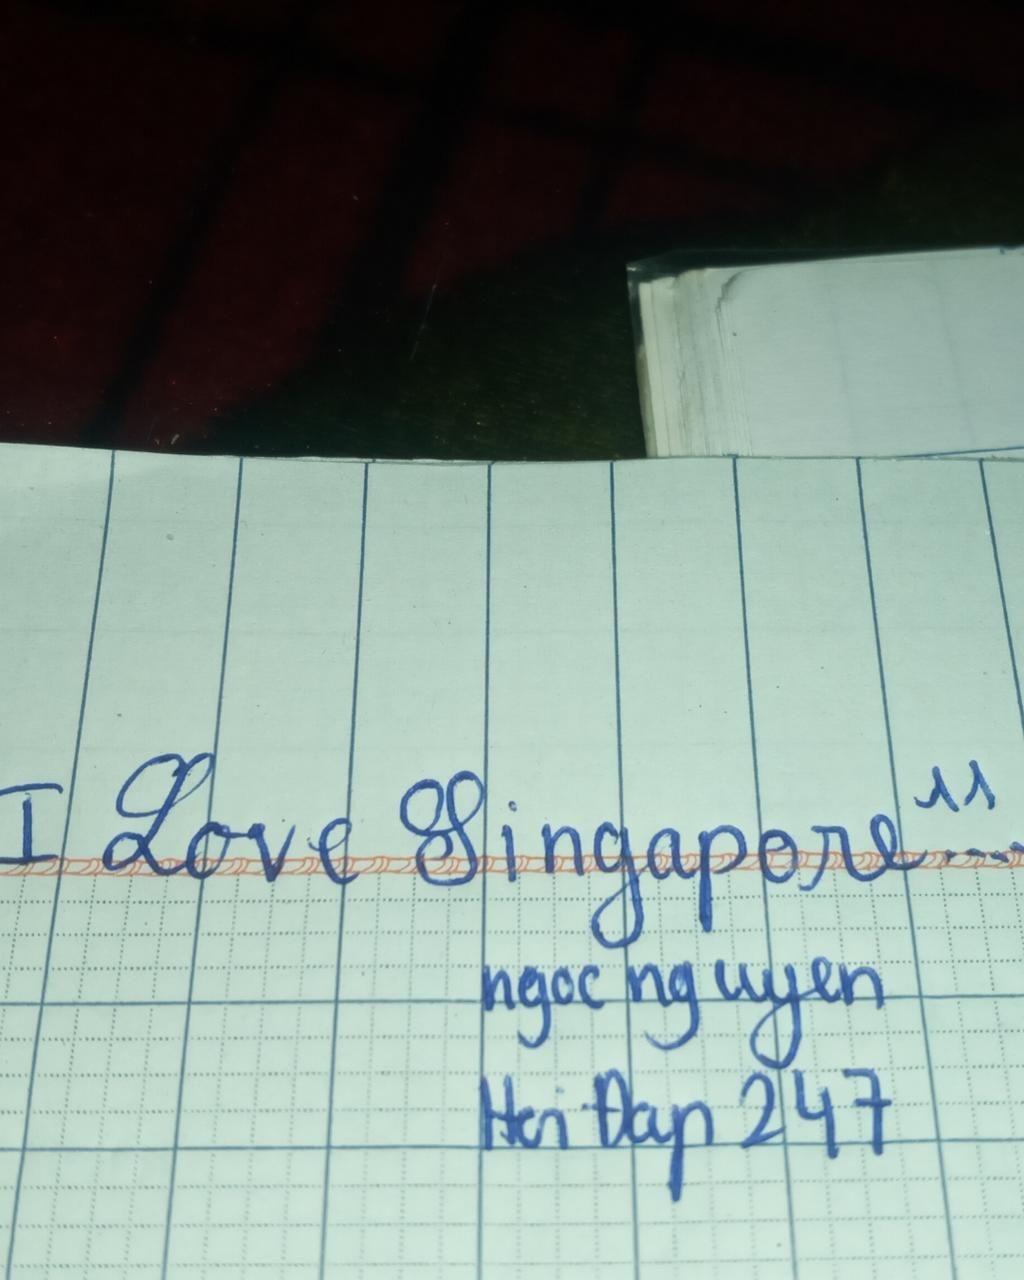 I Love Singapore"....
ngoc nguyen
Hoi Đap 247